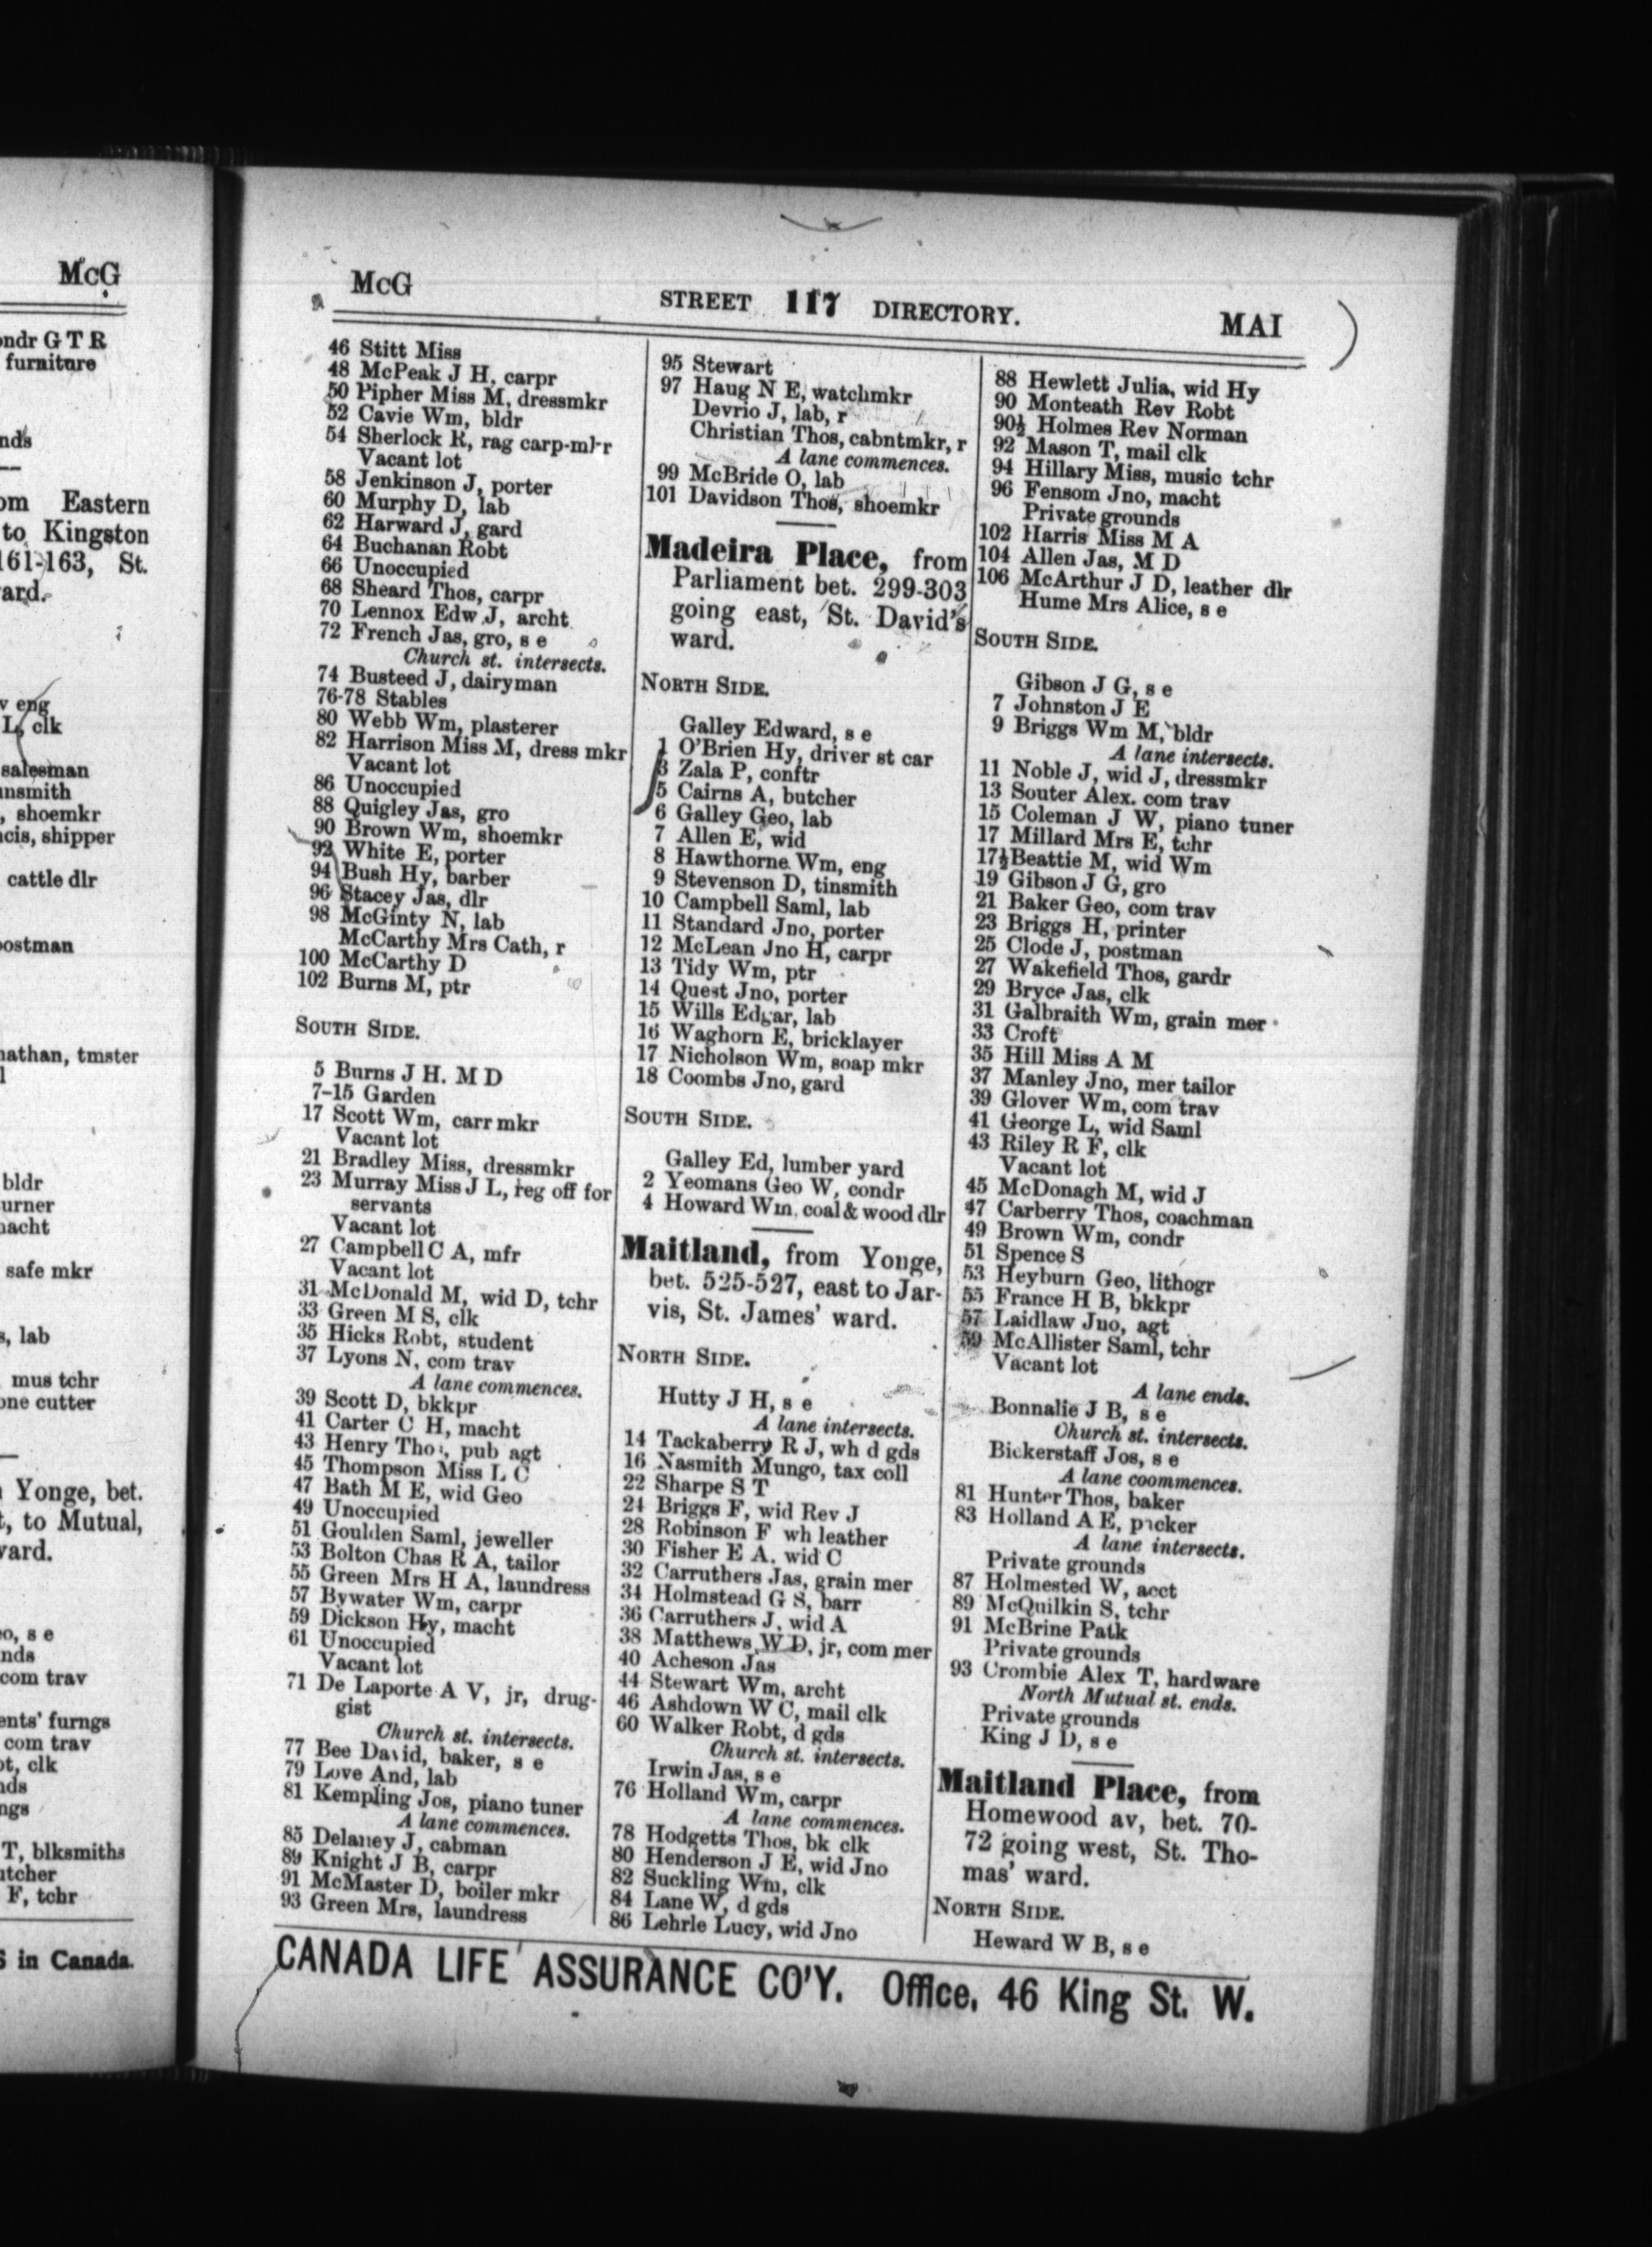 McG
ndr G T R
furniture
nds
om Eastern
to Kingston
161-163, St.
ard.
v eng
L, clk
salesman
unsmith
, shoemkr
cis, shipper
cattle dlr
postman
nathan, tmster
l
bldr
urner
macht
safe mkr
s, lab
mus tchr
one cutter
Yonge, bet.
t, to Mutual,
vard.
eo, s e
nds
com trav
ents' furngs
com trav
ot, clk
nds
ngs
T, blksmiths
utcher
F, tchr
S in Canada.
McG
STREET 117 DIRECTORY.
MAI
46 Stitt Miss
48 McPeak J H, carpr
50 Pipher Miss M, dressmkr
52 Cavie Wm, bldr
54 Sherlock R, rag carp-mkr
Vacant lot
58 Jenkinson J, porter
60 Murphy D, lab
62 Harward J, gard
64 Buchanan Robt
66 Unoccupied
68 Sheard Thos, carpr
70 Lennox Edw J, archt
72 French Jas, gro, s e
Church st. intersects.
74 Busteed J, dairyman
76-78 Stables
80 Webb Wm, plasterer
82 Harrison Miss M, dress mkr
Vacant lot
86 Unoccupied
88 Quigley Jas, gro
90 Brown Wm, shoemkr
92 White E, porter
94 Bush Hy, barber
96 Stacey Jas, dlr
98 McGinty N, lab
McCarthy Mrs Cath, r
100 McCarthy D
102 Burns M, ptr
SOUTH SIDE.
5 Burns J H. M D
7-15 Garden
17 Scott Wm, carr mkr
Vacant lot
21 Bradley Miss, dressmkr
23 Murray Miss J L, reg off for
servants
Vacant lot
27 Campbell C A, mfr
Vacant lot
31 McDonald M, wid D, tchr
33 Green M S, clk
35 Hicks Robt, student
37 Lyons N, com trav
A lane commences.
39 Scott D, bkkpr
41 Carter C H, macht
43 Henry Thos, pub agt
45 Thompson Miss L C
47 Bath M E, wid Geo
49 Unoccupied
51 Goulden Saml, jeweller
53 Bolton Chas R A, tailor
55 Green Mrs H A, laundress
57 Bywater Wm, carpr
59 Dickson Hy, macht
61 Unoccupied
Vacant lot
71 De Laporte A V, jr, drug-
gist
Church st. intersects.
77 Bee David, baker, s e
79 Love And, lab
81 Kempling Jos, piano tuner
A lane commences.
85 Delaney J, cabman
89 Knight J B, carpr
91 McMaster D, boiler mkr
93 Green Mrs, laundress
95 Stewart
97 Haug N E, watchmkr
Devrio J, lab, r
Christian Thos, cabntmkr, r
A lane commences.
99 McBride O, lab
101 Davidson Thos, shoemkr
Madeira Place, from
Parliament bet. 299-303
going east, St. David's
ward.
NORTH SIDE.
Galley Edward, s e
1 O'Brien Hy, driver st car
3 Zala P, conftr
5 Cairns A, butcher
6 Galley Geo, lab
7 Allen E, wid
8 Hawthorne Wm, eng
9 Stevenson D, tinsmith
10 Campbell Saml, lab
11 Standard Jno, porter
12 McLean Jno H, carpr
13 Tidy Wm, ptr
14 Quest Jno, porter
15 Wills Edgar, lab
16 Waghorn E, bricklayer
17 Nicholson Wm, soap mkr
18 Coombs Jno, gard
SOUTH SIDE.
Galley Ed, lumber yard
2 Yeomans Geo W, condr
4 Howard Wm, coal & wood dlr
Maitland, from Yonge,
bet. 525-527, east to Jar-
vis, St. James' ward.
NORTH SIDE.
Hutty J H, s e
A lane intersects.
14 Tackaberry R J, wh d gds
16 Nasmith Mungo, tax coll
22 Sharpe S T
24 Briggs F, wid Rev J
28 Robinson F wh leather
30 Fisher E A, wid C
32 Carruthers Jas, grain mer
34 Holmstead G S, barr
36 Carruthers J, wid A
38 Matthews W D, jr, com mer
40 Acheson Jas
44 Stewart Wm, archt
46 Ashdown W C, mail clk
60 Walker Robt, d gds
Church st. intersects.
Irwin Jas, s e
76 Holland Wm, carpr
A lane commences.
78 Hodgetts Thos, bk clk
80 Henderson J E, wid Jno
82 Suckling Wm, clk
84 Lane W, d gds
86 Lehrle Lucy, wid Jno
88 Hewlett Julia, wid Hy
90 Monteath Rev Robt
90½ Holmes Rev Norman
92 Mason T, mail clk
94 Hillary Miss, music tchr
96 Fensom Jno, macht
Private grounds
102 Harris Miss M A
104 Allen Jas, M D
106 McArthur J D, leather dlr
Hume Mrs Alice, s e
SOUTH SIDE.
Gibson J G, s e
7 Johnston J E
9 Briggs Wm M, bldr
A lane intersects.
11 Noble J, wid J, dressmkr
13 Souter Alex. com trav
15 Coleman J W, piano tuner
17 Millard Mrs E, tchr
17½ Beattie M, wid Wm
19 Gibson J G, gro
21 Baker Geo, com trav
23 Briggs H, printer
25 Clode J, postman
27 Wakefield Thos, gardr
29 Bryce Jas, clk
31 Galbraith Wm, grain mer
33 Croft
35 Hill Miss A M
37 Manley Jno, mer tailor
39 Glover Wm, com trav
41 George L, wid Saml
43 Riley R F, clk
Vacant lot
45 McDonagh M, wid J
47 Carberry Thos, coachman
49 Brown Wm, condr
51 Spence S
53 Heyburn Geo, lithogr
55 France H B, bkkpr
57 Laidlaw Jno, agt
59 McAllister Saml, tchr
Vacant lot
A lane ends.
Bonnalie J B, s e
Church st. intersects.
Bickerstaff Jos, s e
A lane coommences.
81 Hunter Thos, baker
83 Holland A E, packer
A lane intersects.
Private grounds
87 Holmested W, acct
89 McQuilkin S, tchr
91 McBrine Patk
Private grounds
93 Crombie Alex T, hardware
North Mutual st. ends.
Private grounds
King J D, s e
Maitland Place, from
Homewood av, bet. 70-
72 going west, St. Tho-
mas' ward.
NORTH SIDE.
Heward W B, s e
CANADA LIFE ASSURANCE CO'Y. Office, 46 King St. W.